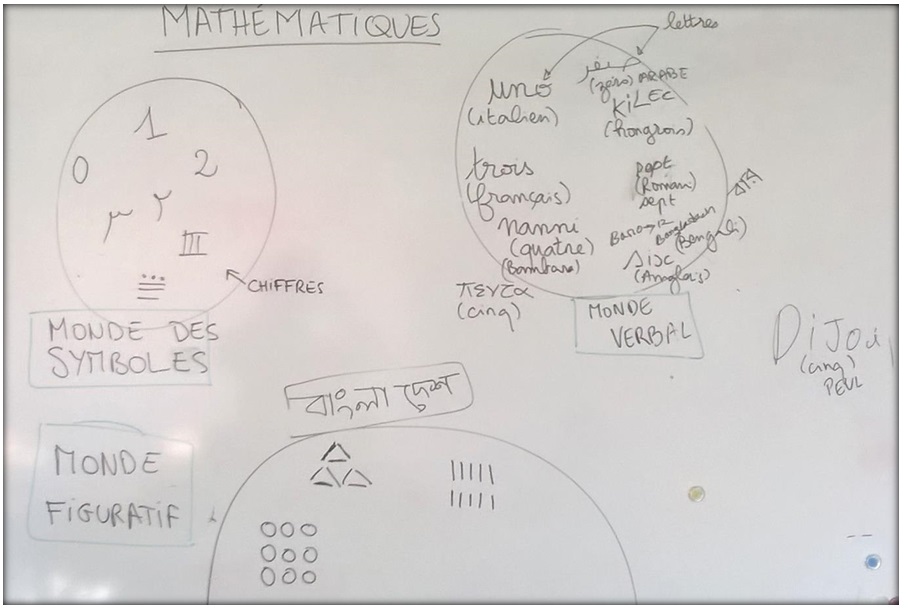 MATHÉMATIQUES
lettres
1
0
2
٣ ٢
III
CHIFFRES
MONDE DES
SYMBOLES
uno
(italien)
صفر
(zéro) ARABE
KiLEC
(hongrois)
trois
(français)
papt
(Roman)
sept
nanni
(quatre)
(Bambara)
(Bengali)
sisc
(Anglais)
πεντα
(cinq)
MONDE
VERBAL
DiJoi
(cinq)
PEUL
বাংলা দেশ
MONDE
FiGURATiF